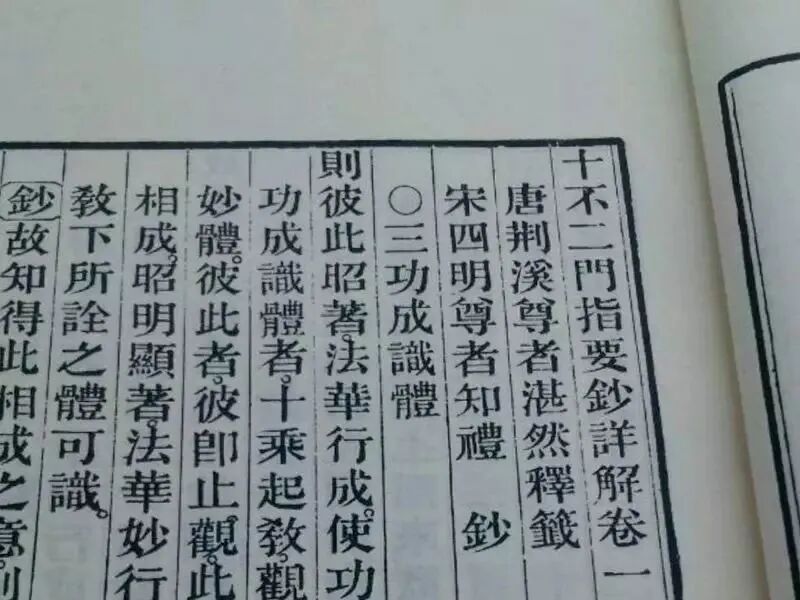 十不二門指要鈔詳解卷一
唐荆溪尊者湛然釋籤
宋四明尊者知禮 鈔
〇三功成識體
則彼此昭著。法華行成。使功
功成識體者。十乘起教。觀
妙體。彼此者。彼卽止觀。此
相成。昭明顯著。法華妙行
教下所詮之體可識。
鈔故知得此相成之意。則